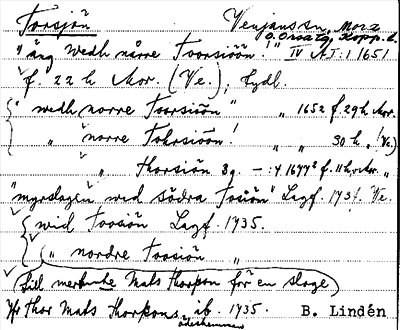 Torsjön Venjans sn, Mora
o. Orsa tg, Kopp. l.
"äng wedh nårre Toorsiöön" IV AI:1 1651
f. 22 h Mor. (Ve.), Lydl.
"wedh norre Toorsiöön" " 1652 f. 29 h Mor.
" norre Tohrsiöön! " " 30 h " (Ve.)
" Thorsiön 3g. — :4 1677² f. 11 h, Mor. "
"myrslogen wed södra Tosiön" Lagf. 1731. Ve.
"wid Toosiön Lagf. 1735.
" nordre Toosiön "
Mats Thorson för en sloge
Thor Mats Thorsons ib. 1735. B. Lindén